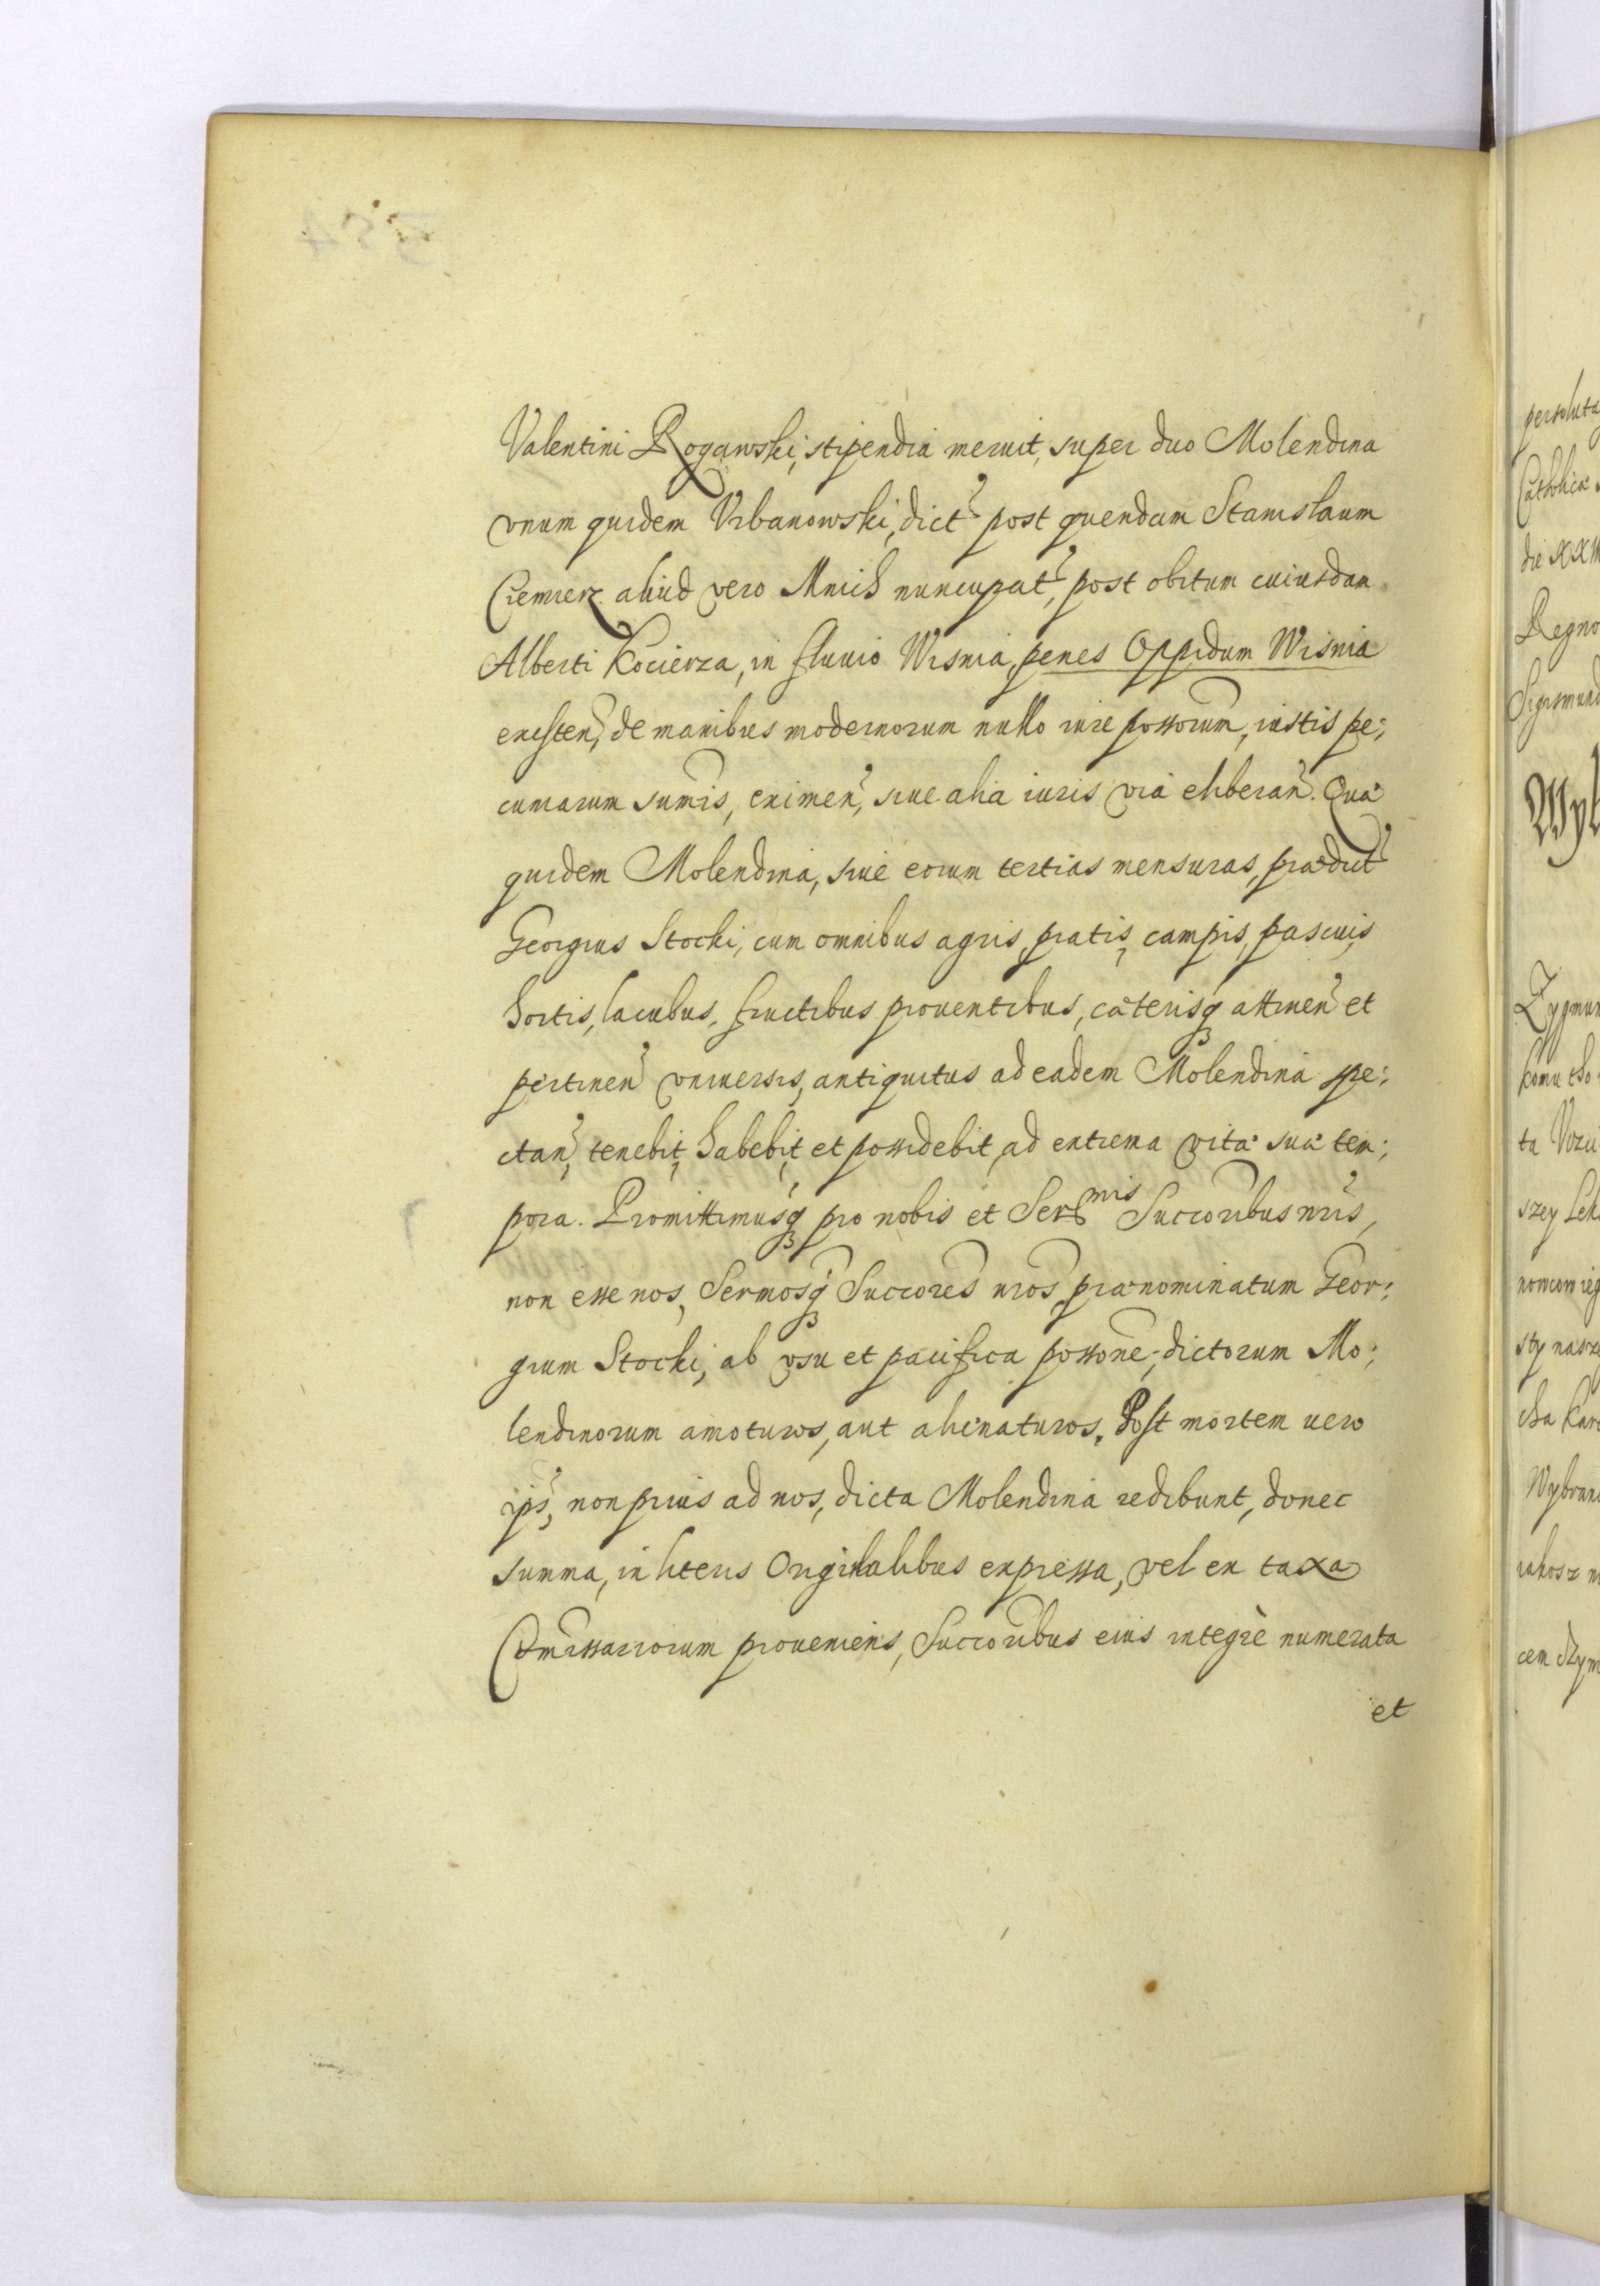 Valentini Rogawski, stipendia meruit, super duo Molendina
vnum quidem Vrbanowski, dict post quendam Stanislaum
Ciemierz aliud vero Mnich nuncupat, post obitum cuiusdam
Alberti Kocierza, in fluuio Wisnia, penes Oppidum Wisnia
existen, de manibus modernorum nullo iure possorum, iustis pe;
cuniarum sumis, eximen, siue alia iuris via eliberan. Quæ
quidem Molendina, siue eorum tertias mensuras, prædict
Georgius Stocki, cum omnibus agris, pratis, campis, pascuis,
hortis, lacubus, fructibus prouentibus, cæterisq attinen et
pertinen vniuersis, antiquitus ad eadem Molendina spe;
ctan, tenebit, habebit, et possidebit, ad extrema vitæ suæ tem;
pora. Promittimusq pro nobis et Ser mis Succoribus nris,
non esse nos, Sermosq Succores nros, prænominatum Geor;
gium Stocki, ab vsu et pacifica possone, dictorum Mo;
lendinorum amoturos, aut alienaturos. Post mortem uero
ips, non prius ad nos, dicta Molendina redibunt, donec
summa, in literis Originalibus expressa, vel ex taxa
Comissariorum proueniens, Succoribus eius integrè numerata
et
persoluta
Catholicæ
die XXII
Regno
Sigismund
Wyb
Zygmun
komu tho
szey Lek
sty nasze
cha Karo
Wybran
iakosz